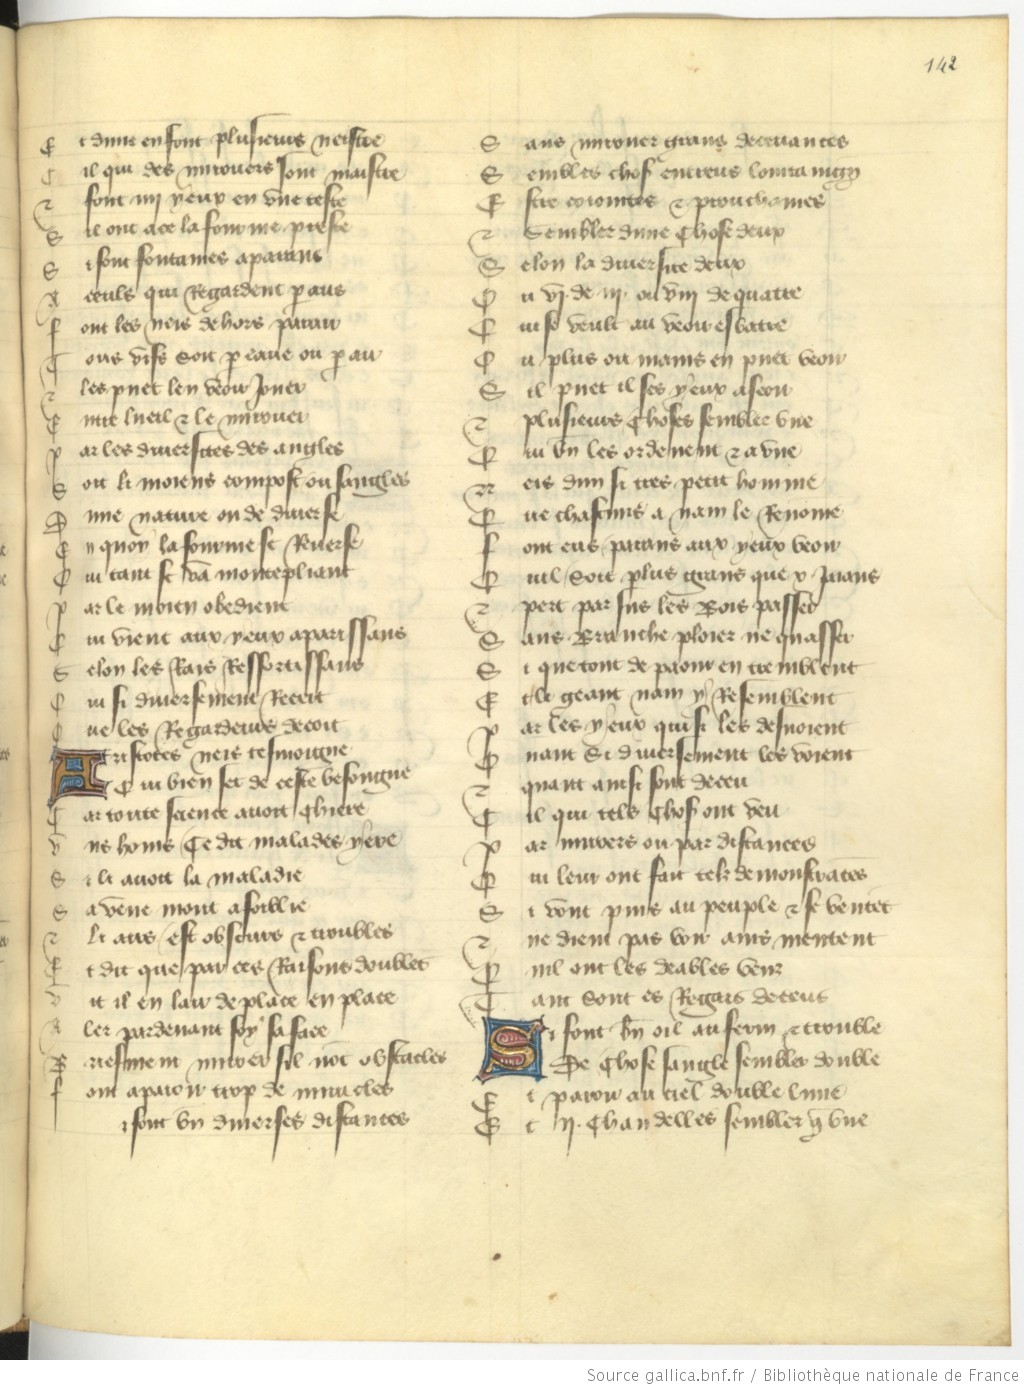 142
Et dune en font plusieurs neistre
Cil qui des mirouers sont maistre
Et font iiij yeux en vne teste
Sil ont ace la fourme preste
Si font fontaines aparans
A ceuls qui Regardent par ans
Font les neis dehors paroir
Tous vifs soit par eaue ou par air
Et les puet len veoir Joner
Entre lueil et le mirouer
Par les diuersites des angles
Soit li moiens compost ou sangles
Dune nature ou de diuerse
En quoy la fourme se Reuerse
Qui tant se va montepliant
Par le moien obedient
Qui vient aux yeux aparissans
Selon les Rais Ressortissans
Qui si diuersement Recoit
Que les Regardeurs decoit
Aristotes neis tesmoigne
Qui bien scet de ceste besongne
Car toute science auoit chiere
Vns homs Ce dit malades yere
Si li auoit la maladie
Sa veue mont afoiblie
Et li airs est obscurs et troubles
Et dit que par ces Raisons doubles
Vit il en lair de place en place
Aler pardeuant soy sa face
Briefment miroer sil not obstacles
Font aparoir trop de miracles
Si font bn diuerses distances
Sans mirouer grans deceuances
Sembles chos entreus lontaingn
Estre coiointes et prouchaines
Et sembler dune chose deux
Selon la diuersite deux
Ou vj. de iij. ou viij de quatre
Qui se veult au veoir esbatre
Ou plus ou mains en puet veoir
Sil puet il ses yeux aseoir
Et plusieurs choses sembler vne
Qui bn les ordenent et a vne
Neis dun si tres petit homme
Que chascuns a nain le Renome
Font eus parans aux yeux veoir
Quil soit plus grans que x Jaians
Et pert par sus les Bois passer
Sans Branche ploier ne quasser
Si que tout de paour en tremblent
Et li geant nain y Resemblent
Par les yeux qui si les desuoient
Quant Si diuersement les voient
Et quant ainsi sont deceu
Cil qui tels chos ont veu
Par mirers ou par distances
Qui leur ont fait telz demonstrances
Si vont puis au peuple et se ventet
Et ne dient pas voir ains mentent
Quil ont les deables veuz
Tant sont es Regars deceus
Si font bn oil anferm et trouble
De chose sangle sembler double
Et paroir au ciel double lune
Et ij. chandelles sembler q vne
Source gallica.bnf.fr / Bibliothèque nationale de France